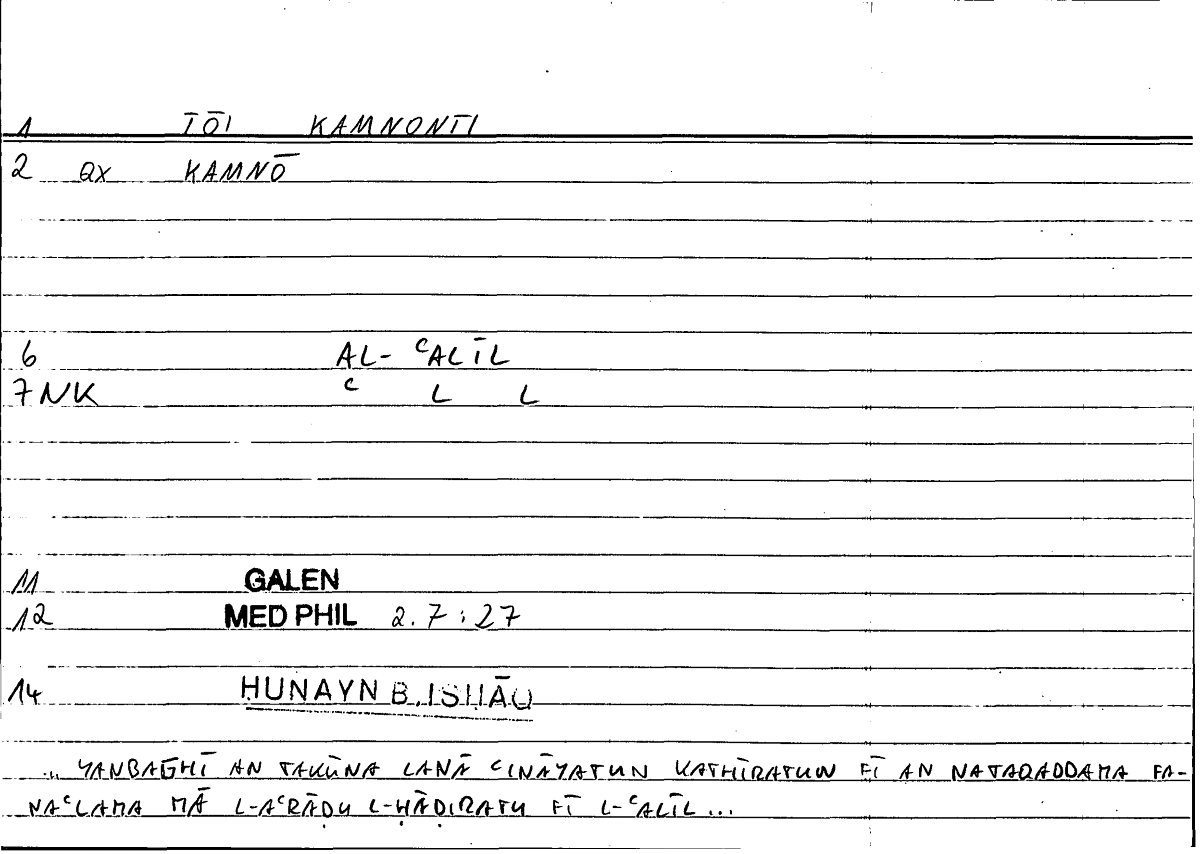 1 TŌI KAMNONTI
2 QX KAMNŌ
6 AL- ᶜALĪL
7 NK ᶜ L L
11 GALEN
12 MED PHIL 2.7:27
14 HUNAYN B. ISḤĀQ
... YANBAGHĪ AN TAKŪNA LANĀ ᶜINĀYATUN KATHĪRATUN FĪ AN NATAQADDAMA FA-
NAᶜLAMA MĀ L-AᶜRĀḌU L-ḤĀḌIRATU FĪ L-ᶜALĪL ...